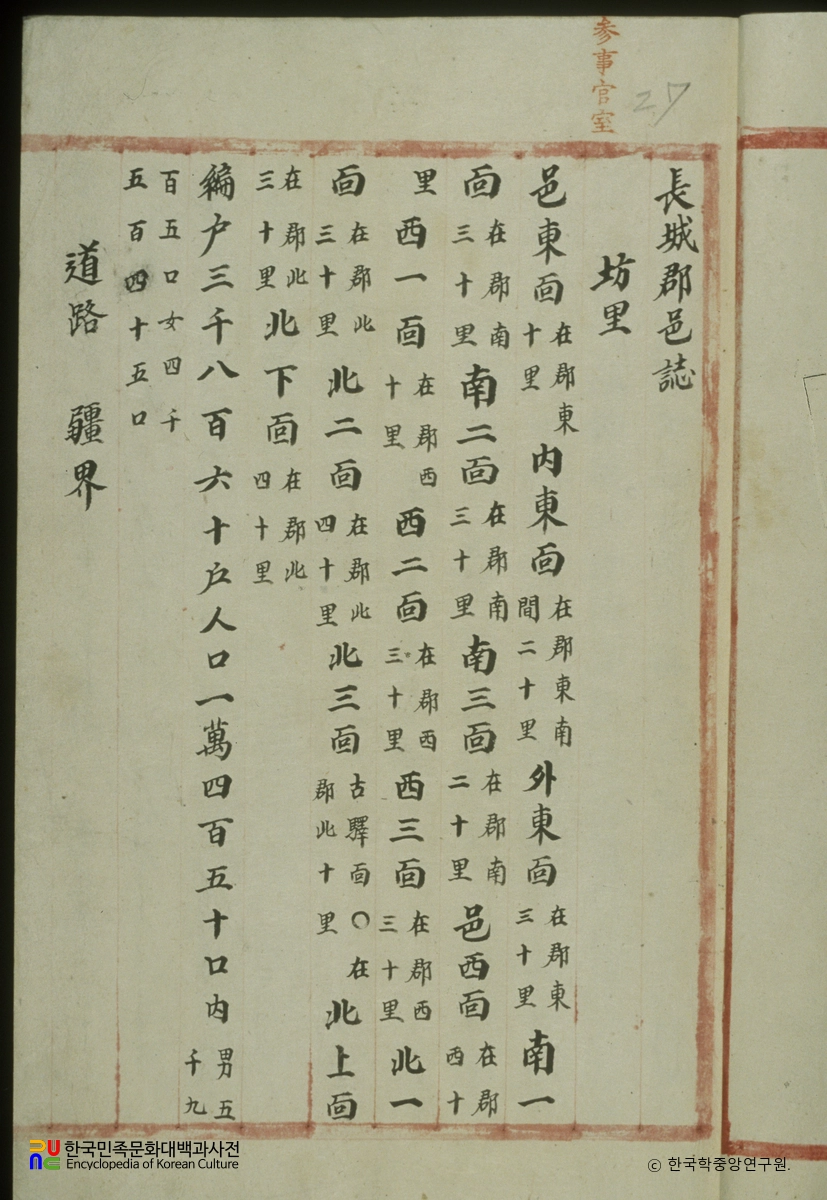 参事官室
27
長城郡邑誌
坊里
邑東面在郡東十里内東面在郡東南間二十里外東面在郡東三十里南一
面在郡南三十里南二面在郡南三十里南三面在郡南二十里邑西面在郡西十
里西一面在郡西十里西二面在郡西三十里西三面在郡西三十里北一
面在郡北三十里北二面在郡北四十里北三面古驛面〇在郡北十里北上面
在郡北三十里北下面在郡北四十里
編户三千八百六十户人口一萬四百五十口内男五千九
百五口女四千五百四十五口
道路 疆界
한국민족문화대백과사전
Encyclopedia of Korean Culture
© 한국학중앙연구원.